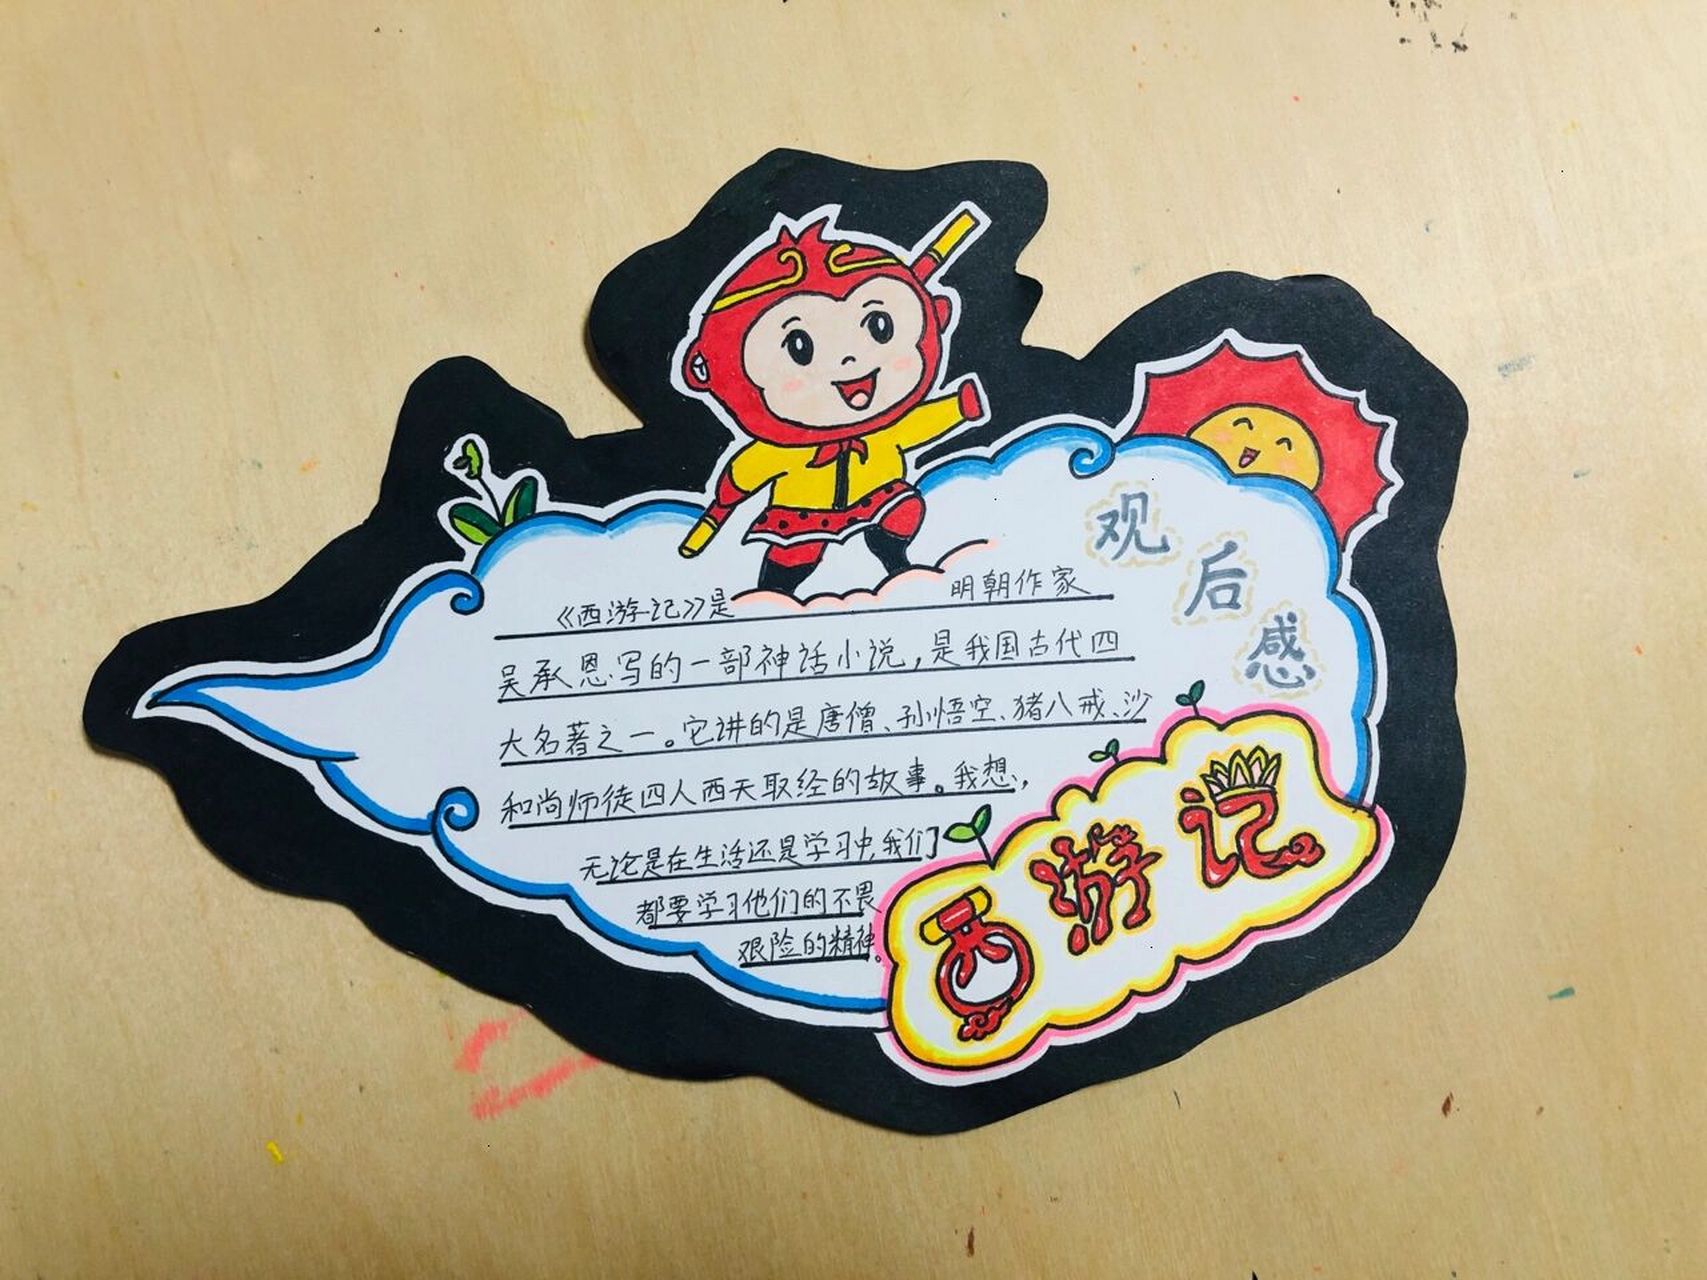 观后感
《西游记》是 明朝作家
吴承恩写的一部神话小说，是我国古代四
大名著之一。它讲的是唐僧、孙悟空、猪八戒、沙
和尚师徒四人西天取经的故事。我想，
无论是在生活还是学习中，我们
都要学习他们的不畏
艰险的精神。
西游记